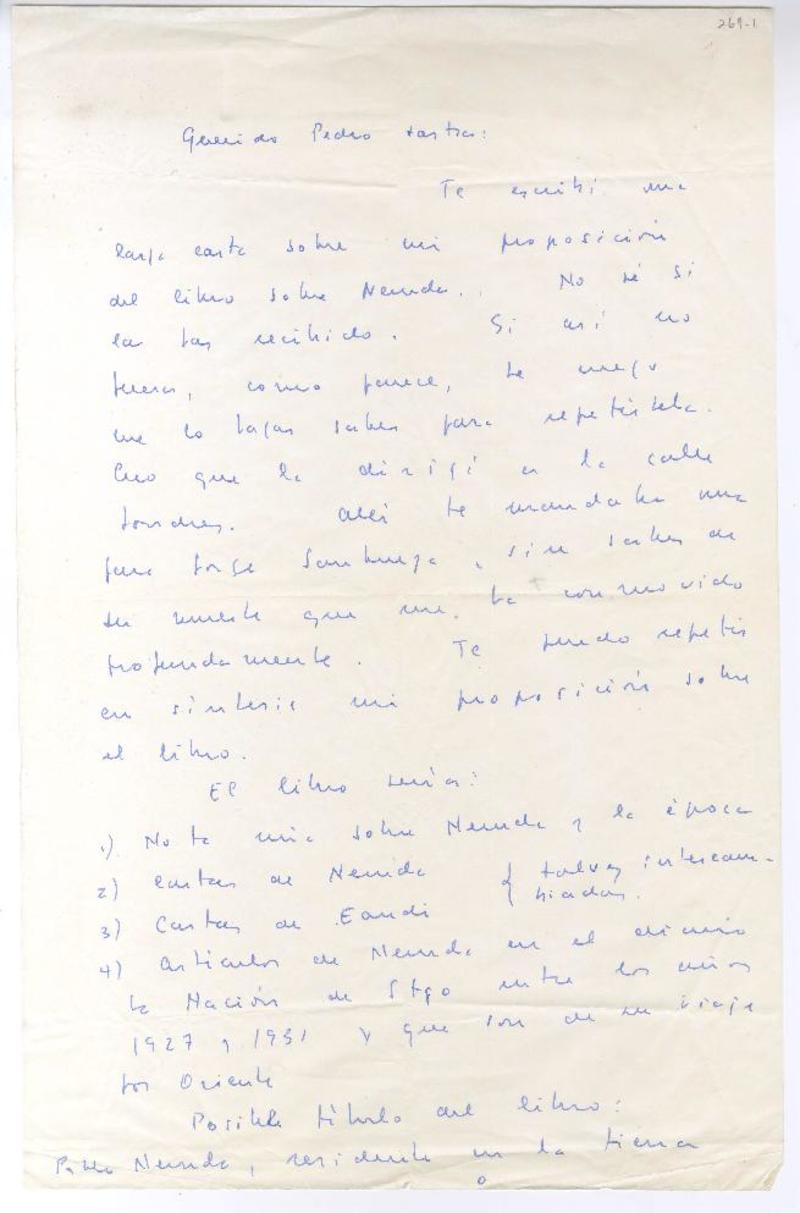 269-1
Querido Pedro Lastra:
Te escribí una
larga carta sobre mi proposición
del libro sobre Neruda. No sé si
la has recibido. Si así no
fuera, como parece, te ruego
me lo hagas saber para repetírtela.
Creo que la dirigí a la calle
Londres. Allí te mandaba una
para Jorge Sanhueza, sin saber de
su muerte que me ha conmovido
profundamente. Te puedo repetir
en síntesis mi proposición sobre
el libro.
El libro sería:
1) Nota mía sobre Neruda y la época
2) Cartas de Neruda { talvez intercam-
3) Cartas de Eandi { biadas.
4) Artículos de Neruda en el diario
la Nación de Stgo entre los años
1927 y 1931 y que son de su viaje
por Oriente
Posible título del libro:
Pablo Neruda, residente en la tierra
o